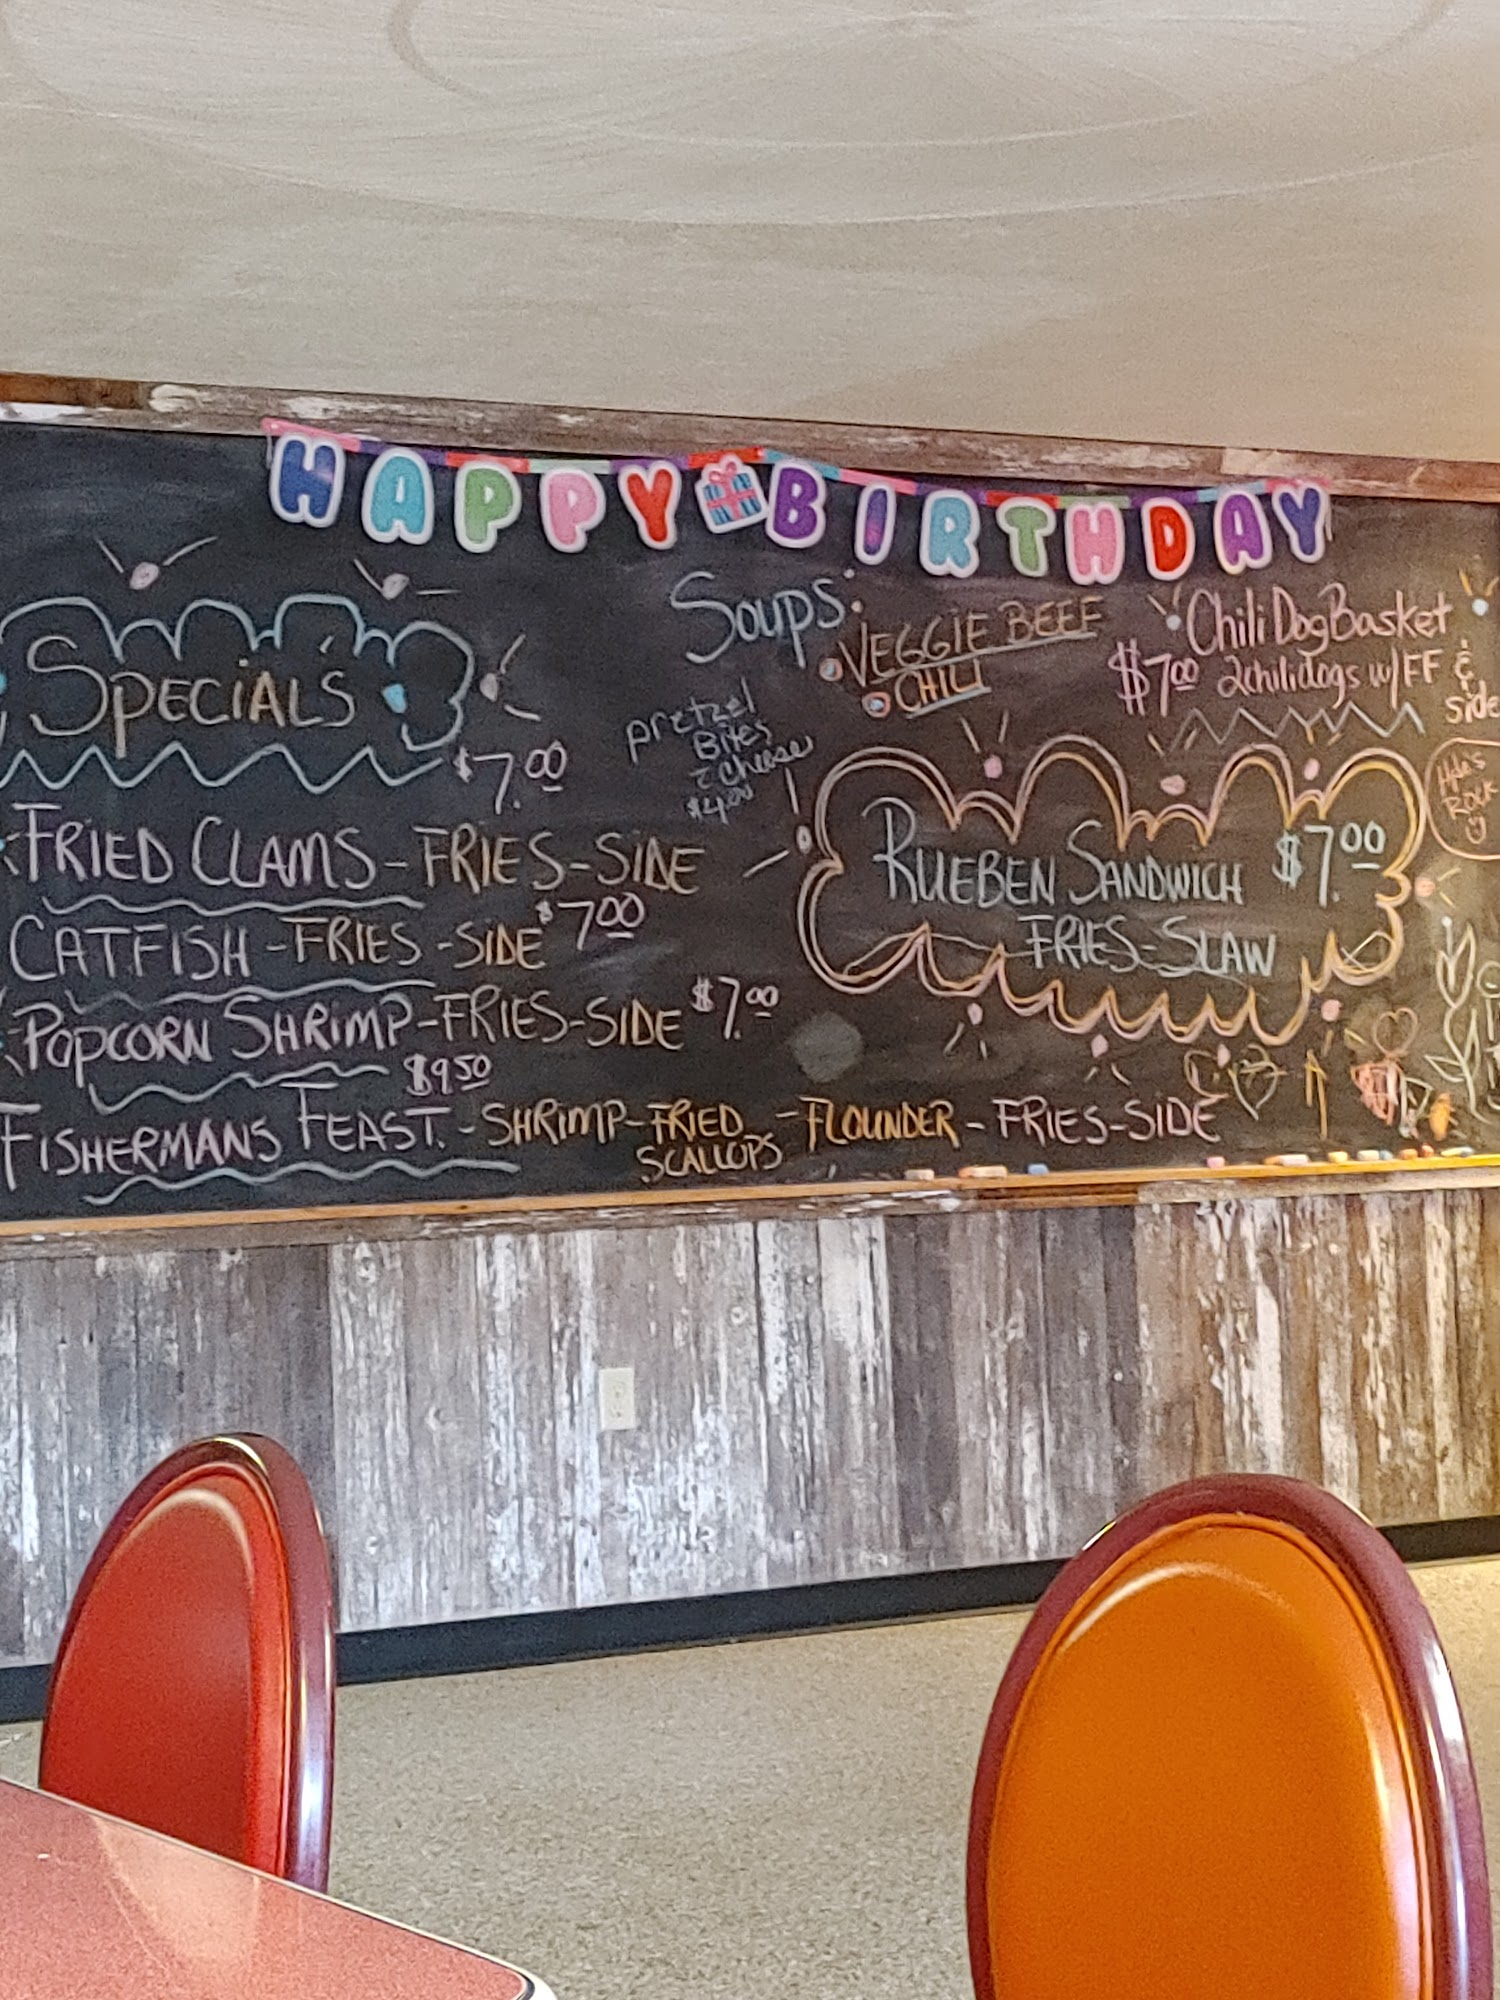 HAPPY BIRTHDAY
SPECIALS
$7.00
FRIED CLAMS-FRIES-SIDE
CATFISH-FRIES-SIDE $7.00
POPCORN SHRIMP-FRIES-SIDE $7.00
$9.50
FISHERMANS FEAST.-SHRIMP-FRIED SCALLOPS-FLOUNDER-FRIES-SIDE
Soups:
VEGGIE BEEF
CHILI
pretzel
Bites
cheese
$4.00
Chili Dog Basket
$7.00 2chilidogs w/FF &
side
RUEBEN SANDWICH $7.00
FRIES-SLAW
ROCK